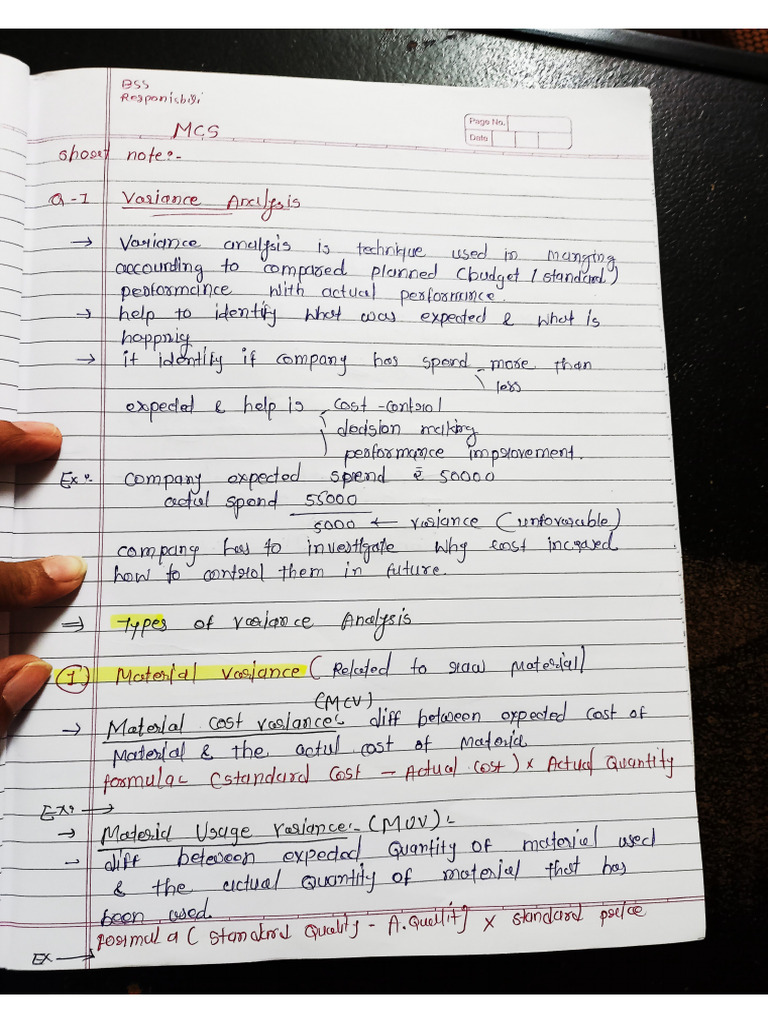 BSS
Responisbigi
MCS
Page No.
Date
short note:-
Q-1 Variance Analysis
→ Variance analysis is technique used in manging
accounting to compared planned (budget / standard)
performance with actual performance.
→ help to identify what was expected & what is
happnig
→ it identify if company has spend more than
less
expected & help is cost-control
decision making
performance improvement.
Ex:- company expected spend 50000
actul spend 55000
5000 ← variance (unfovarable)
company has to investigate why cost incresed
how to control them in future.
⇒ Types of variance Analysis
① Material variance (Related to raw material)
(MCV)
→ Material cost variance:- diff between expected cost of
Material & the actul cost of material
formula:- (standard cost - Actual cost) × Actual Quantity
Ex:- →
→ Material Usage variance:- (MUV):-
→ diff between expected Quantity of material used
& the actual Quantity of material that has
been used.
formula (Standard Quality - A.Quality) × standard price
Ex →